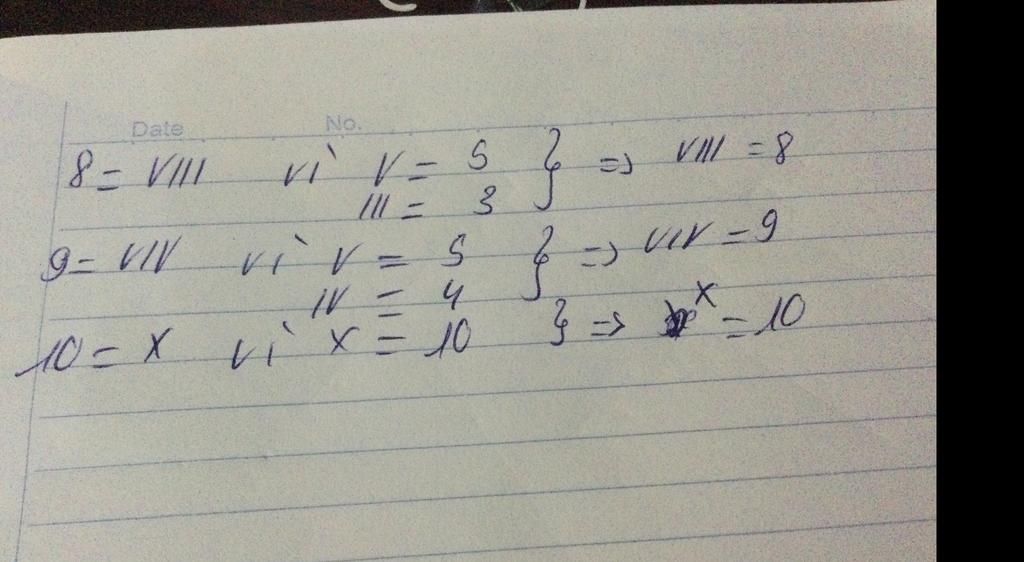 Date No.
8 = VIII vì V = 5 } => VIII = 8
III = 3
9 = VIV vì V = 5 } => VIV = 9
IV = 4
10 = X vì X = 10 } => X = 10